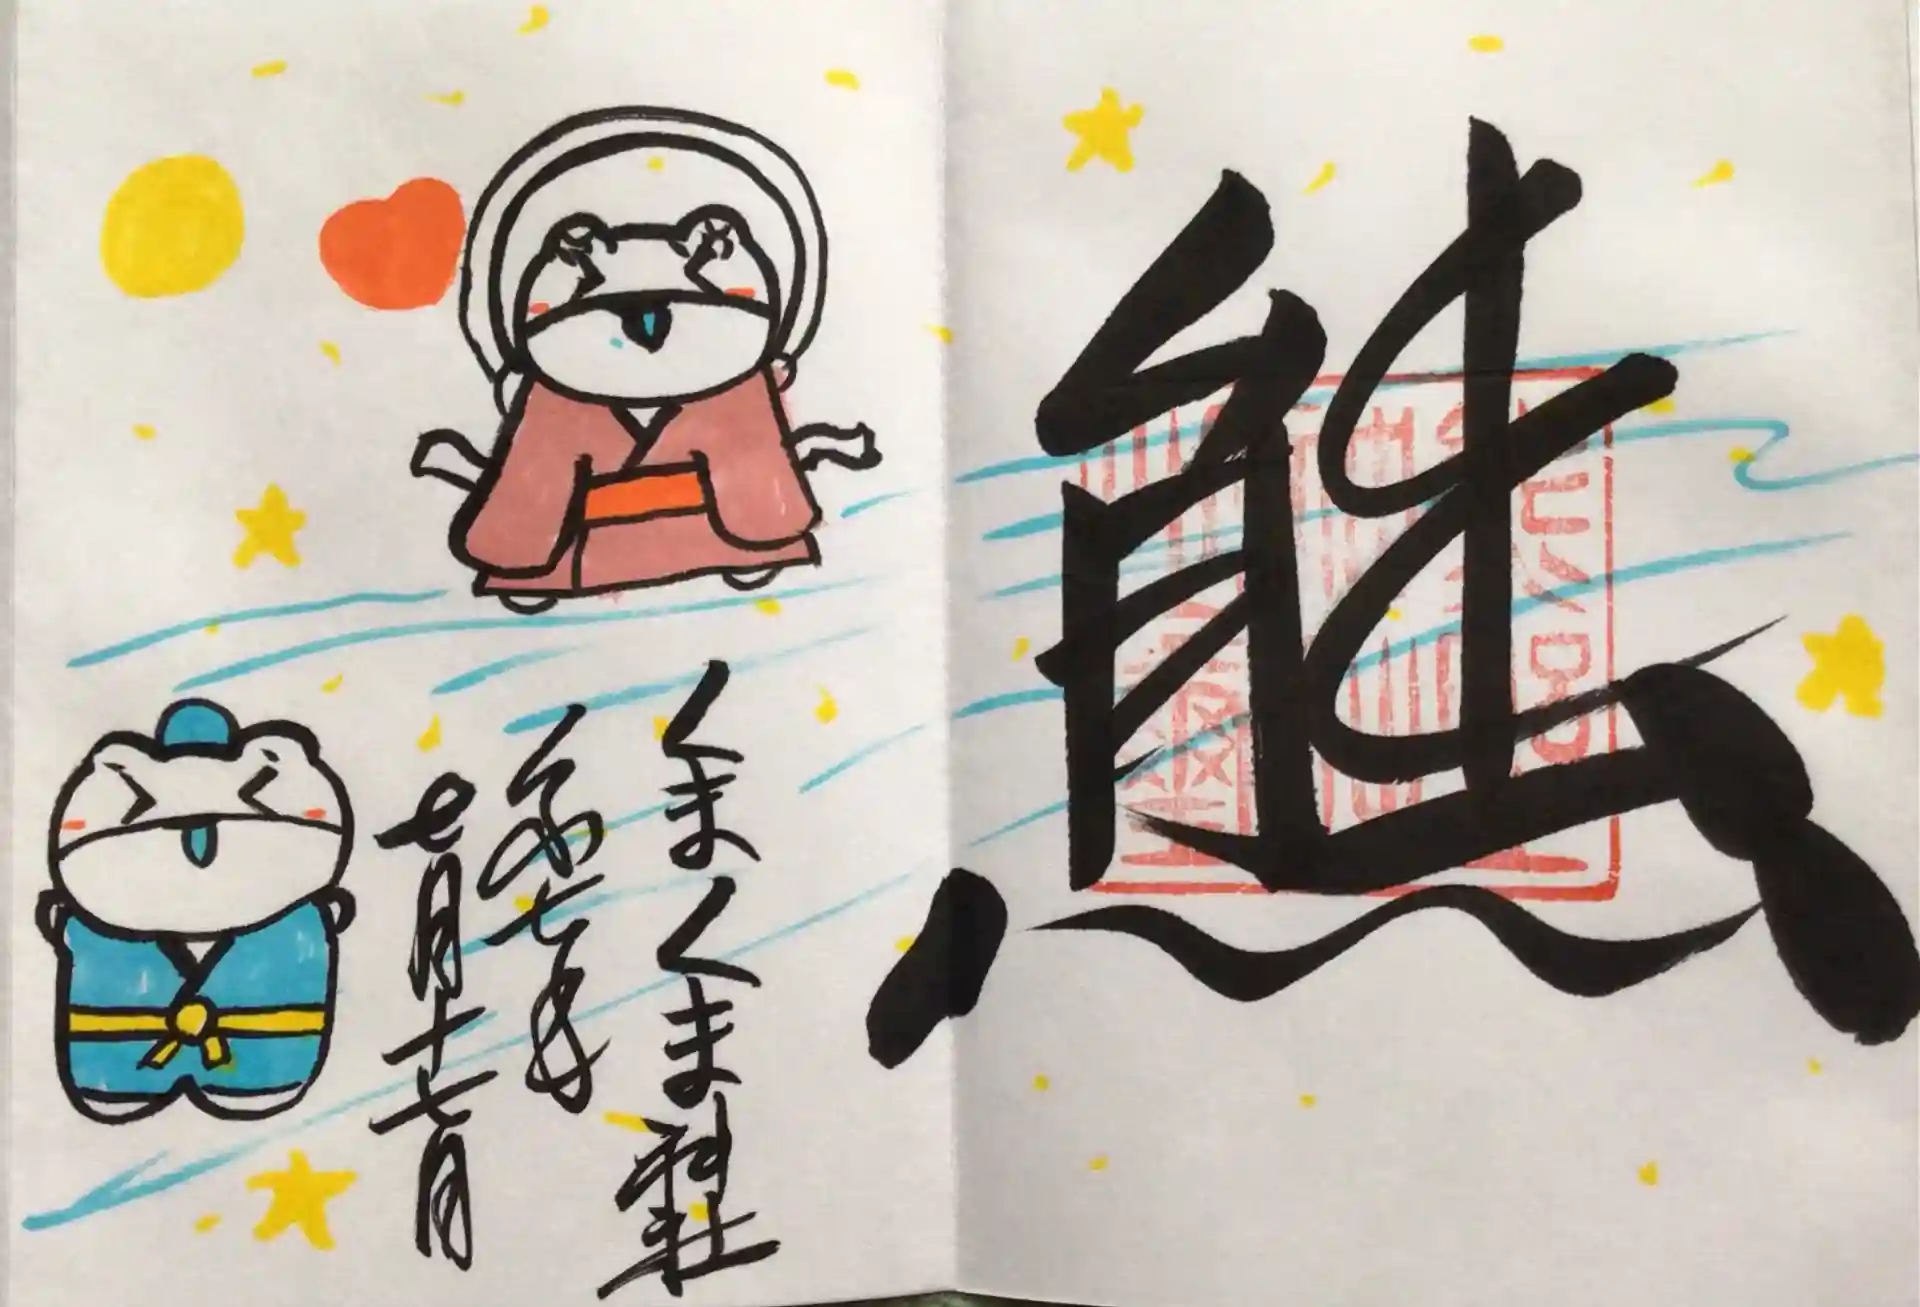 熊
くまくま神社
令和七年
七月十七日